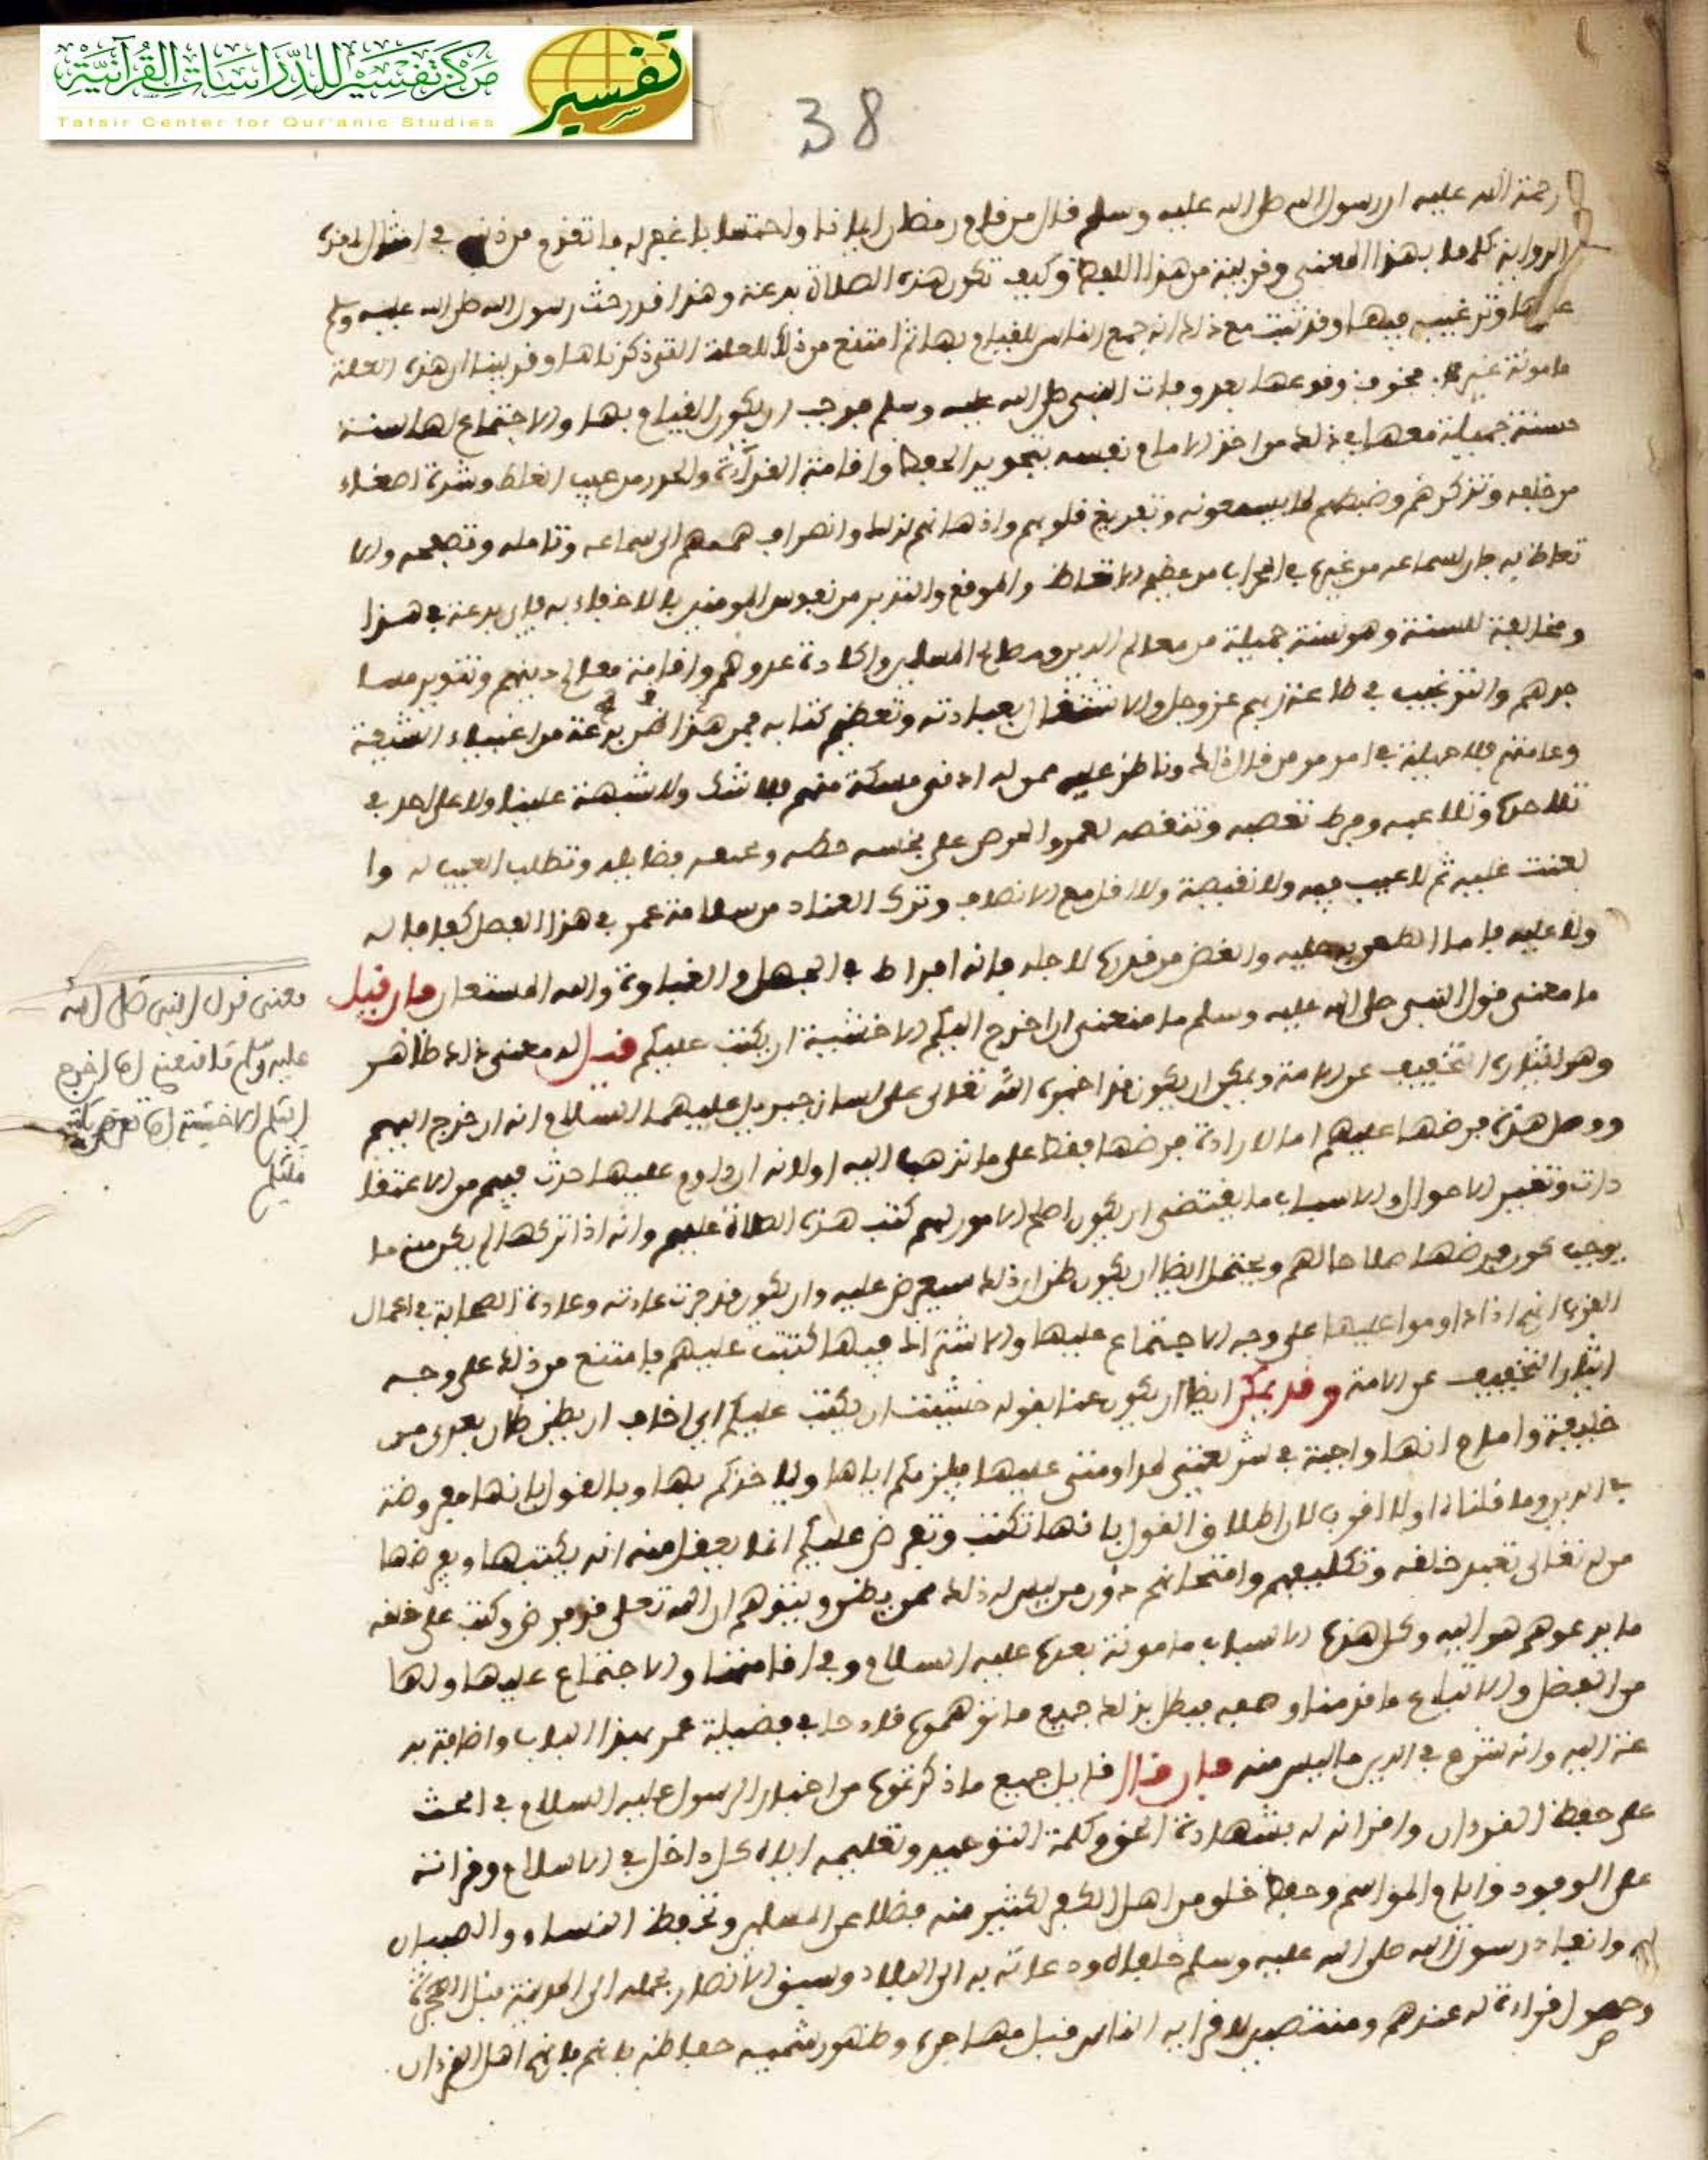 مركز تفسير للدراسات القرآنية
تفسير
Tafsir Center for Qur'anic Studies
38
رحمة الله عليه ان رسول الله صلى الله عليه وسلم قال من قام رمضان ايمانا واحتسابا غفر له ما تقدم من ذنبه في امثال لهذه
الرواية كلها بهذا المعنى وقريبة من هذا اللفظ وكيف تكون هذه الصلاة بدعة وهذا قدر حث رسول الله صلى الله عليه وسلم
عليها وترغيبه فيها وقد ثبت مع ذلك انه جمع الناس للقيام بها ثم امتنع من ذلك للعلة التي ذكرناها وقد بينا ان هذه العلة
مامونة غير مخوف وقوعها بعد وفات النبي صلى الله عليه وسلم فوجب ان يكون القيام بها والاجتماع لها سنة
حسنة جميلة معها في ذلك من اخذ الامام نفسه بتجويد الحفظ واقامة القراءة والحذر من عيب الغلط وشدة اصغاء
من خلفه وتذكرهم وضبطهم لما يسمعونه وتفريغ قلوبهم واذهانهم لذلك وانصراف هممهم الى سماعه وتامله وتصفحه والا
تعاظ به فان لسماعه من غيره في المحراب من عظيم الاتعاظ والموقع والتدبر من نفوس المومنين ما لا خفاء به فاي بدعة في هذا
ومخالفة للسنة وهو سنة جميلة من معالم الدين ومصالح المسلمين واكادة عدوهم واقامة معالم دينهم وتنوير مسا
جدهم والترغيب في طاعة ربهم عز وجل والاشتغال بعبادته وتعظيم كتابه فمن هذا ظن بدعة من اغبياء الشيعة
وعامتهم فلا حيلة في امره ومن قال ذلك وناظر عليه ممن له ادنى مسكة منهم فلا شك ولا شبهة علينا ولا على احد في
تلاحده وتلاعبه وفرط تعصبه وتنقصه لعمر والحرص على بخسه حظه وغمضه فضايله وتطلب العيب له وا
لعنت عليه ثم لا عيب فيه ولا نقيصة ولا اقل مع الانصاف وترك العناد من سلامة عمر في هذا الفصل كفافا لا له
ولا عليه فاما الطعن به عليه والغض من قدره لاجله فانه افراط في الجهل والغباوة والله المستعان فان قيل
ما معنى قول النبي صلى الله عليه وسلم ما منعني ان اخرج اليكم الا خشية ان يكتب عليكم قيل له معنى ذلك ظاهر
وهو ايثاره التخفيف عن الامة ويمكن ان يكون قد اخبره الله تعالى على لسان جبريل عليهما السلام انه ان خرج اليهم
ووصل هذه فرضها عليهم اما لارادة فرضها فقط على ما نذهب اليه او لانه ان داوم عليها حدث فيهم من الاعتقا
دات وتغيير الاحوال والاسباب ما يقتضي ان يكون اصلح الامور لهم كتب هذه الصلاة عليهم وانه اذا تركها لم يكن منه ما
يوجب كون فرضها صلاحا لهم ويحتمل ايضا ان يكون ظن ان ذلك سيفرض عليه وان يكون قد جرت عادته وعادة الصحابة في اعمال
القرب انهم اذا داوموا عليها على وجه الاجتماع عليها والاشتراك فيها كتبت عليهم فامتنع من ذلك على وجه
ايثار التخفيف عن الامة وقد يمكن ايضا ان يكون عنا بقوله خشيت ان يكتب عليكم اي اخاف ان يظن ظان بعدي من
خليفة وامام انها واجبة في شريعتي لمداومتي عليها فيلزمكم اياها وياخذكم بها وبالقول بانها مفروضة
في الدين وما قلناه اولا اقرب لان اطلاق القول بانها تكتب وتفرض عليكم انما يعقل منه انه يكتبها ويفرضها
من له تعالى تعبد خلقه وتكليفهم وامتحانهم دون من ليس له ذلك ممن يظن ويتوهم ان الله تعالى قد فرض وكتب على خلقه
ما يدعوهم هو اليه وكل هذه الاسباب مامونة بعده عليه السلام وفي اقامتها والاجتماع عليها ولها
من الفضل والاتباع ما قدمنا وصفه فبطل بذلك جميع ما توهموه قادحا في فضيلة عمر بهذا الباب واضافة بد
عة اليه وانه شرع في الدين ما ليس منه فان قال قايل جميع ما ذكرتموه من اخبار الرسول عليه السلام في الحث
على حفظ القرءان واقرانه له بشهادة الحق وكلمة التوحيد وتعليمه اياه كل داخل في الاسلام وقراءته
على الوفود وايام المواسم وحفظ خلق من اهل الكفر لكثير منه فضلا عن المسلمين وتحفظ النساء والصبيان
له وانفاد رسول الله صلى الله عليه وسلم خلفاءه ودعاته به الى البلاد وسبق الانصار بحمله الى المدينة قبل الهجرة
وحصول قراءة له عندهم ومنتصبين لاقرايه الناس قبل مهاجره وظهور تسميه حفاظه بانهم بانهم اهل القرءان
معنى قول النبي صلى الله
عليه وسلم ما منعني ان اخرج
اليكم الا خشية ان تفرض
عليكم